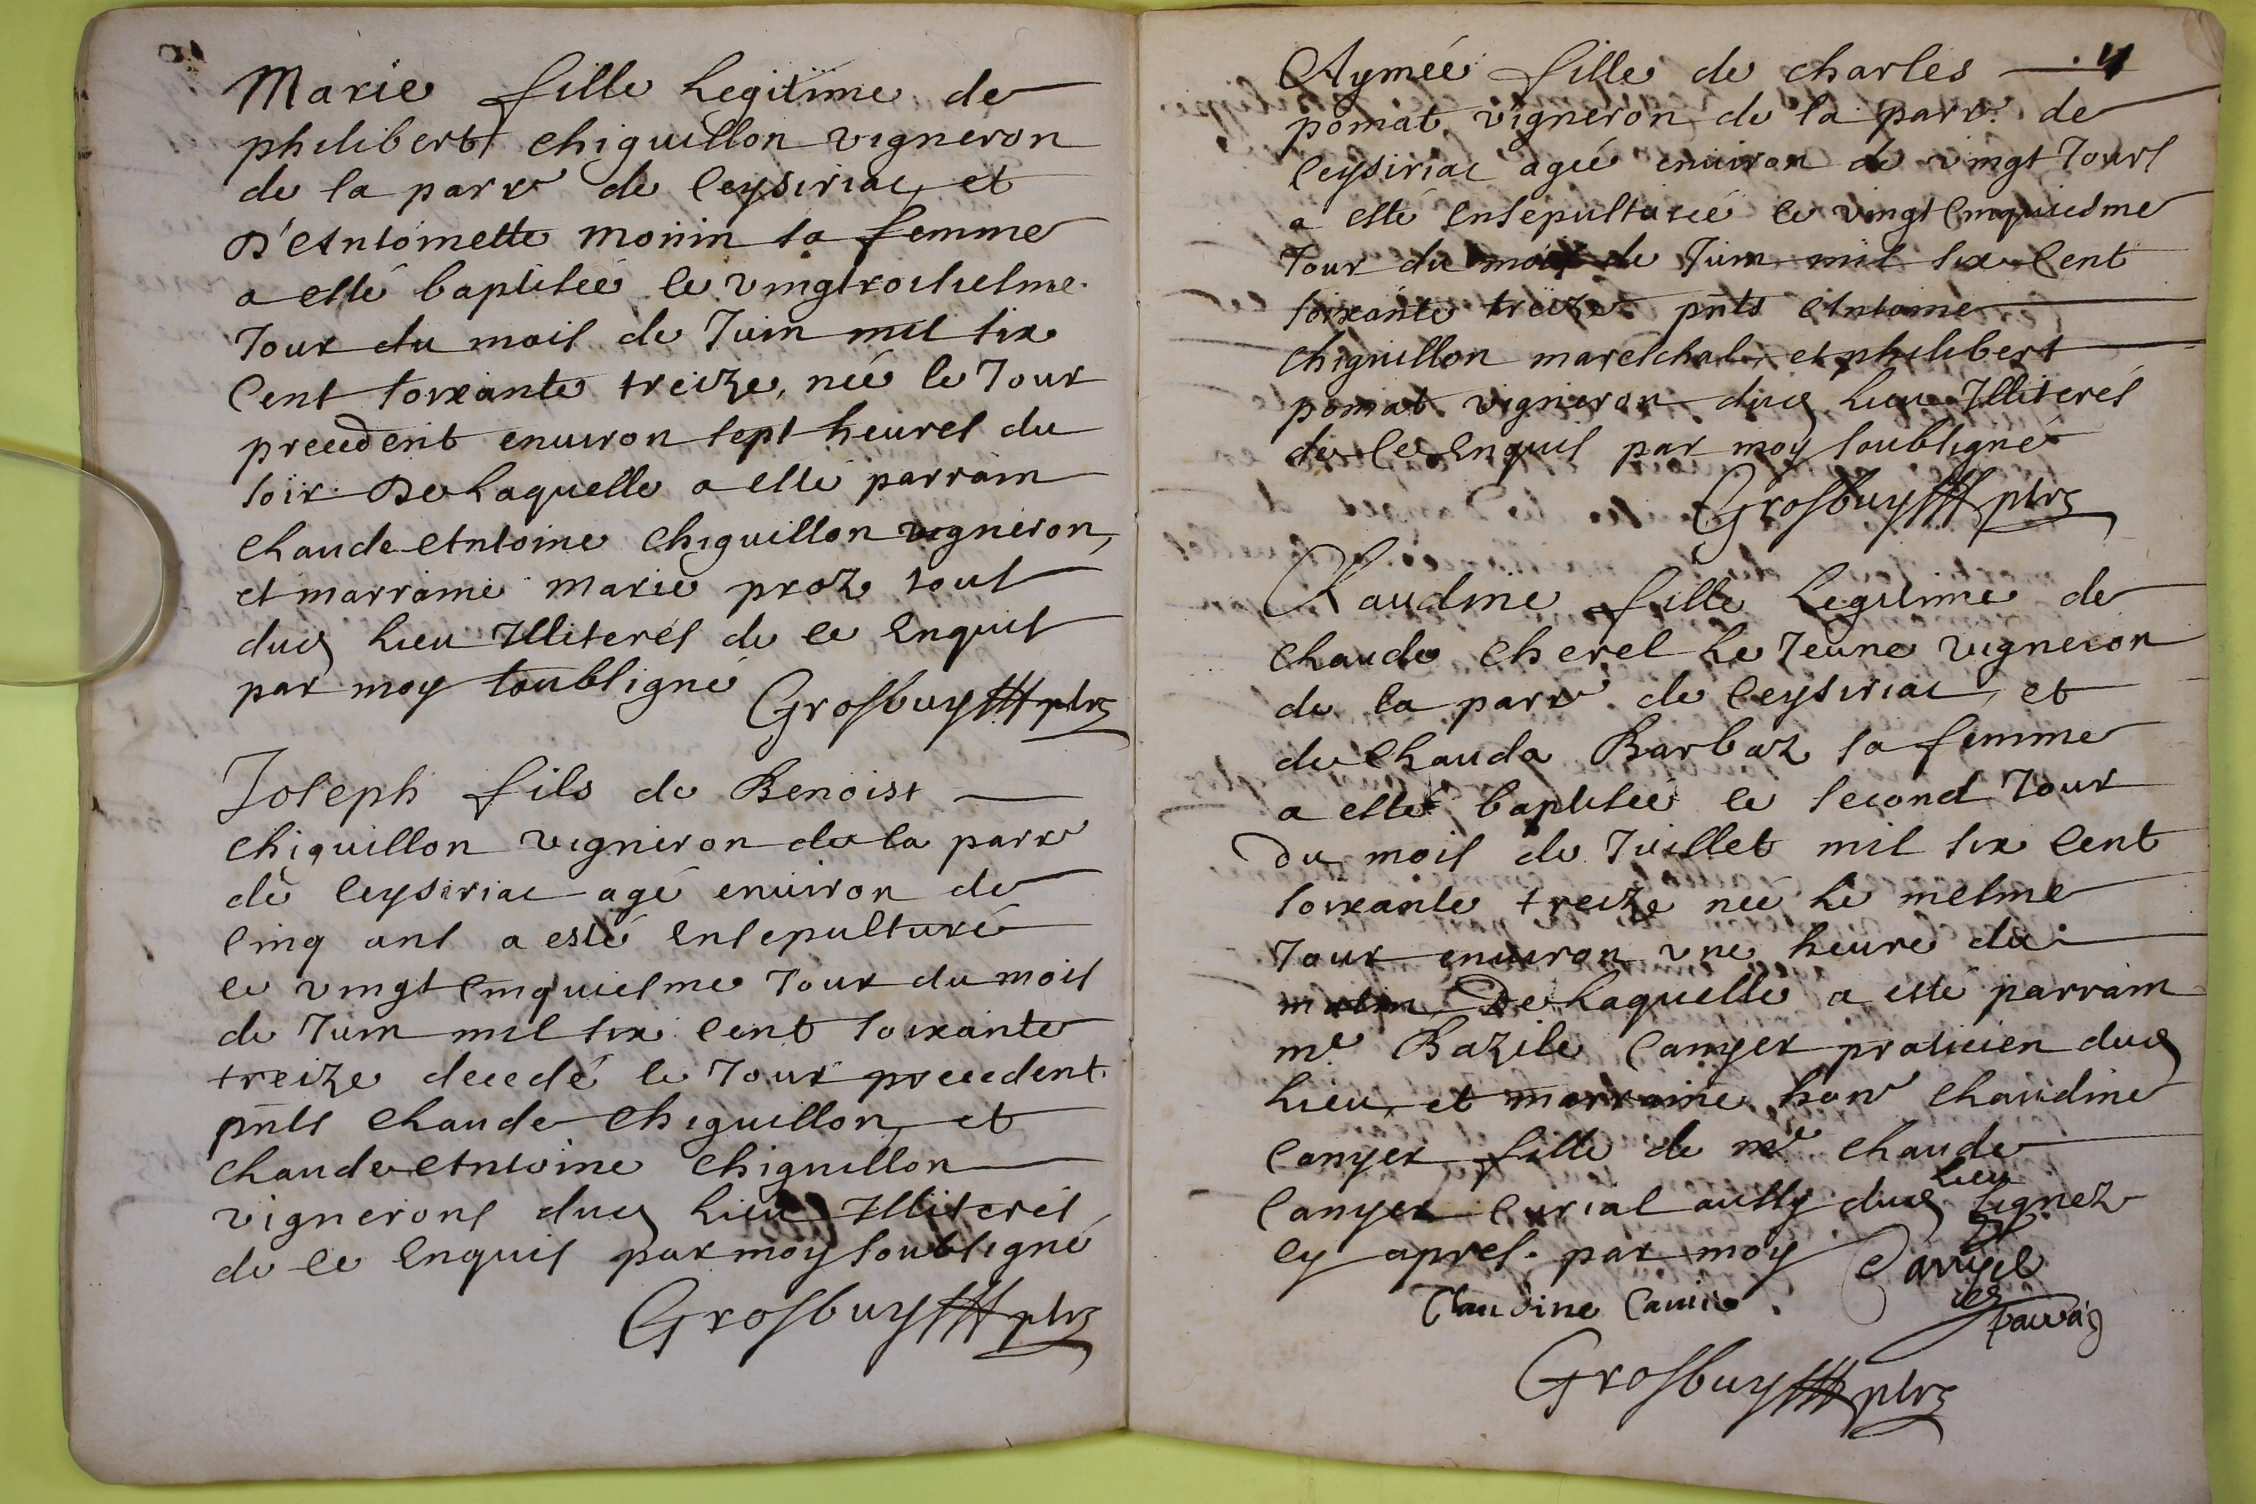 Marie fille legitime de
philibert chiquillon vigneron
de la parr de Ceysiriac, et
D'Antoinette monin sa femme
a esté baptisée le vingtroisiesme
Jour du mois de Juin mil six
Cent soixante treize, née le Jour
precedent enuiron sept heures du
soir. De laquelle a esté parrain
Claude Antoine Chiquillon vigneron,
et marraine Marie proz tous
dud lieu Illiterés de ce enquis
par moy soubsigné Grosbuy ptre
Joseph fils de Benoist
chiquillon vigneron de la parr
de Ceysiriac agé enuiron de
cinq ans a esté ensepulturé
le vingt cinquiesme Jour du mois
de Juin mil six cent soixante
treize decedé le Jour precedent
pnts Claude Chiquillon, et
Claude Antoine Chiquillon
vignerons dud lieu Illiterés
de ce enquis par moy soubsigné
Grosbuy ptre
4
Aymée fille de Charles
pomat vigneron de la parr. de
Ceysiriac agée enuiron de vingt Jours
a esté ensepulturée le vingt cinquiesme
Jour du mois de Juin mil six cent
soixante treize pnts Antoine
Chiquillon mareschal, et philibert
pomat vigneron dud lieu Illiterés
de ce enquis par moy soubsigné
Grosbuy ptre
Claudine fille legitime de
Claude Cherel le Jeune vigneron
de la parr de Ceysiriac, et
de Clauda Barbaz sa femme
a esté baptisée le second Jour
Du mois de Juillet mil six cent
soixante treize née le mesme
Jour enuiron vne heure du
matin, De laquelle a esté parrain
me Bazile Canyer praticien dud
lieu, et marraine hon Claudine
Canyer fille de me Claude
Canyer curial aussy dud lieu signez
cy apres. par moy Canyer
Claudine Canier parrain
Grosbuy ptre